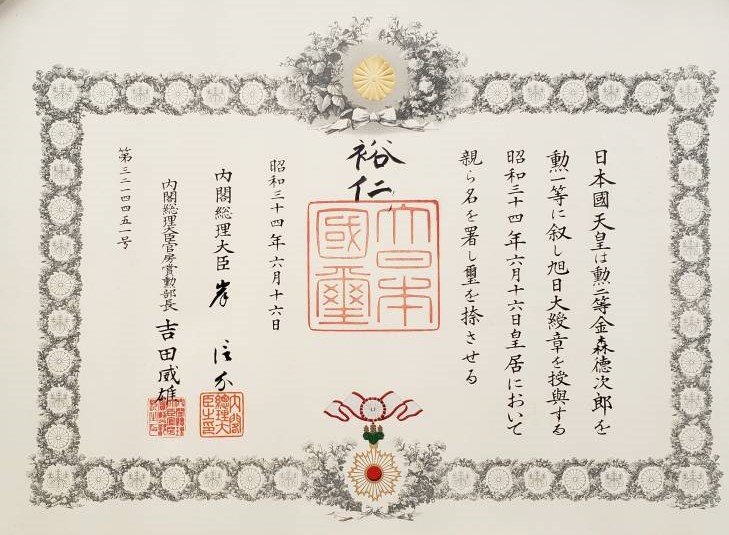 日本國天皇は勲二等金森徳次郎を
勲一等に叙し旭日大綬章を授與する
昭和三十四年六月十六日皇居において
親ら名を署し璽を捺させる
裕仁
大日本
國璽
昭和三十四年六月十六日
内閣総理大臣 岸信介
内閣総理大臣之印
内閣総理大臣官房賞勲部長 吉田威雄
第三二一四四五一号